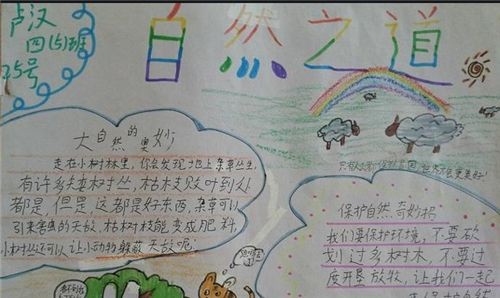 卢汉
四(5)班
25号
自然之道
大自然的奥妙
走在小树林里,你会发现地上杂草丛生,
有许多矮树丛,枯枝败叶到处
都是,但是,这都是好东西,杂草可以
引来害虫的天敌,枯树枝能变成肥料,
小树丛还可以让小动物躲藏天敌呢!
保护自然奇妙招
我们要保护环境,不要砍
划过多树木,不要过
度开垦放牧,让我们一起